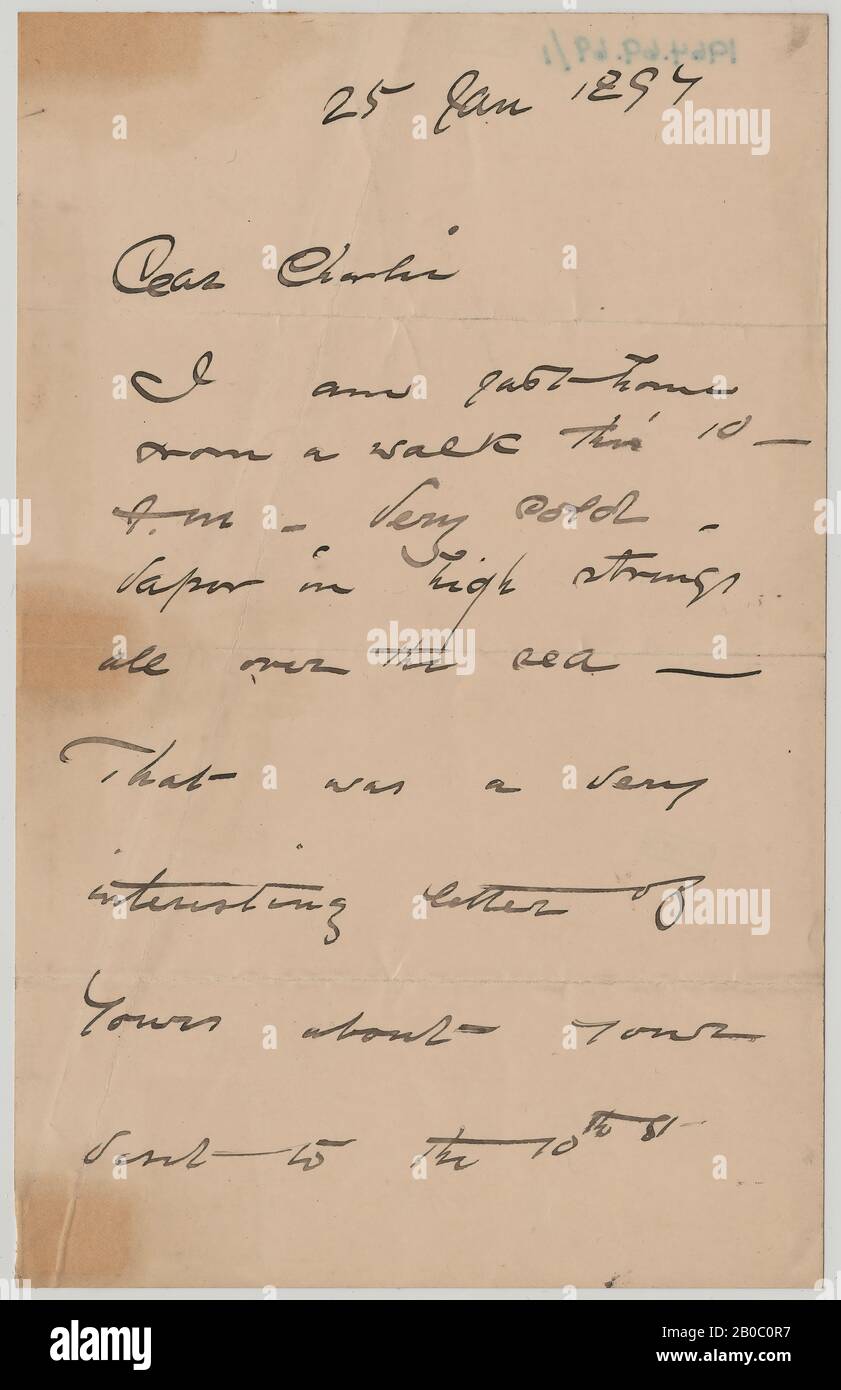 1964.69.69/1
25 Jan 1897
Dear Charlie
I am just home
from a walk this 10 —
A.M — Very cold —
vapor in high strings
all over the sea —
That was a very
interesting letter of
Yours about your
visit to the 10th St
alamy
Image ID: 2B0C0R7
www.alamy.com